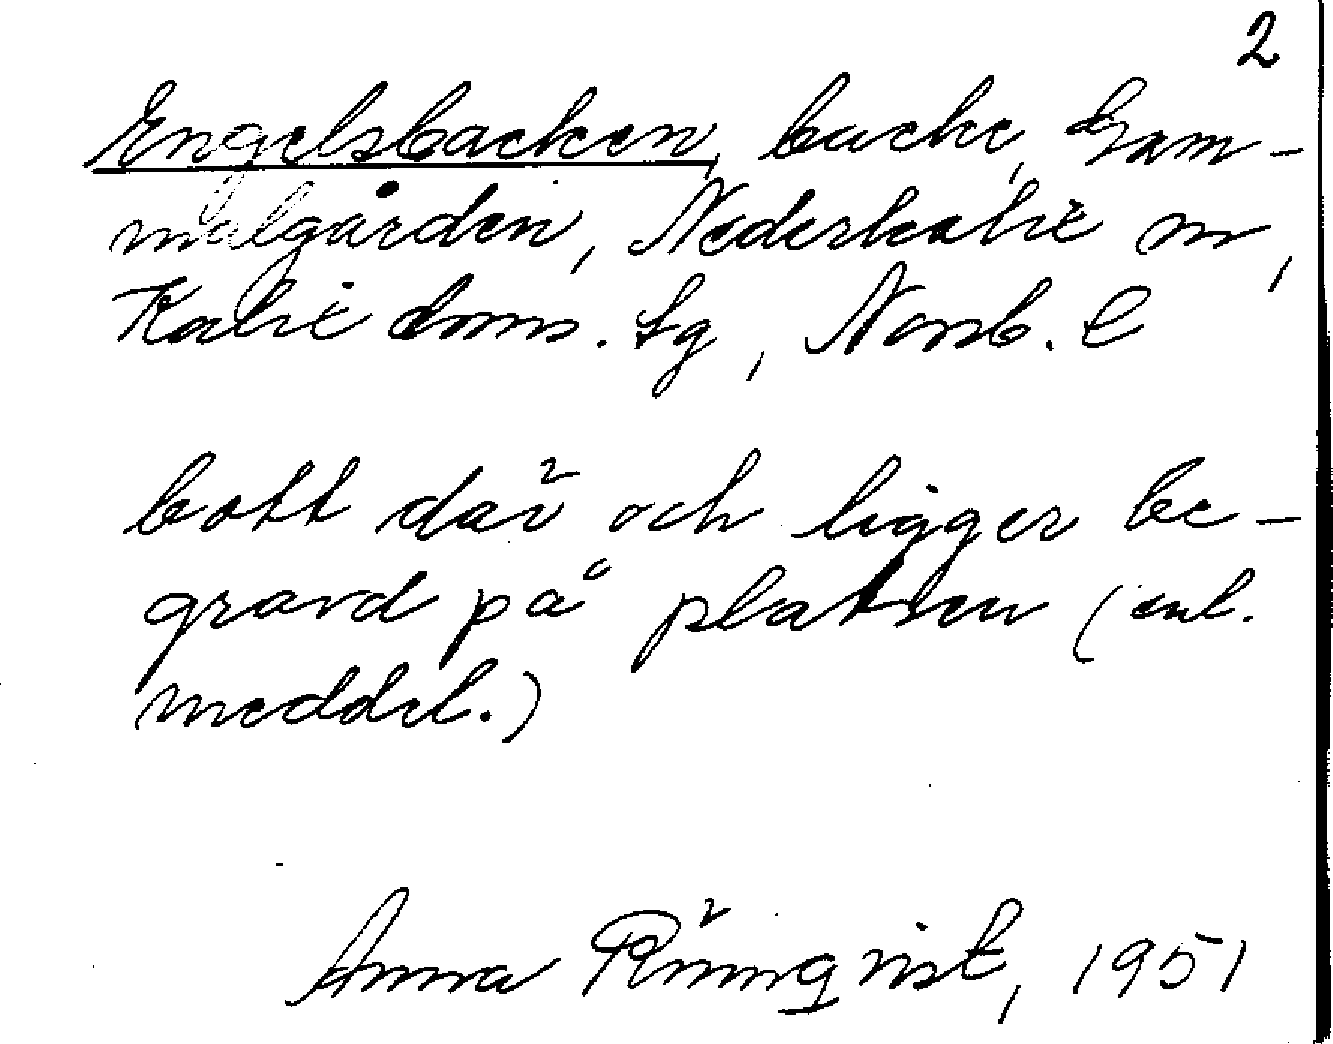 2
Engelsbacken, backe, Gam-
melgården, Nederkalix sn,
Kalix doms. sg, Norrb. l
bott där och ligger be-
gravd på platsen (enl.
meddel.)
Anna Rönnqvist, 1951